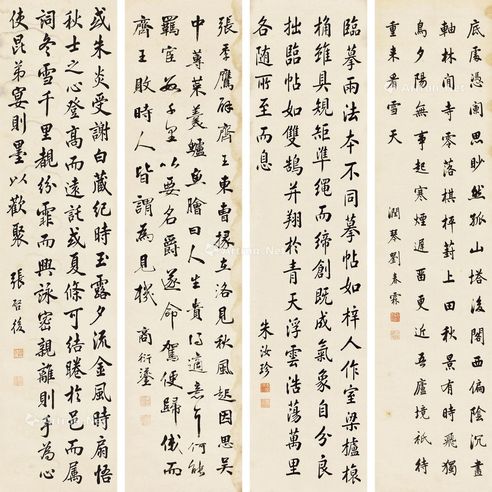 底處憑闌思眇然孤山塔後閣西偏陰沉畫
軸林間寺零落棋枰葑上田秋景有時飛獨
鳥夕陽無事起寒煙遲畱更近吾廬境祇待
重來景雪天 潤琴劉春霖
臨摹兩法本不同摹帖如梓人作室梁櫨榱
桷雖具規矩準繩而締創既成氣象自分良
拙臨帖如雙鵠并翔於青天浮雲浩蕩萬里
各随所至而息 朱汝珍
張季鷹辟齊王東曹掾在洛見秋風起因思吳
中蓴菜羹鱸魚膾曰人生貴得適意爾何能
羈宦數千里以要名爵遂命駕便歸俄而
齊王敗時人皆謂為見機 商衍鎏
或朱炎受謝白藏紀時玉露夕流金風時扇悟
秋士之心登高而遠託或夏條可結睠於邑而属
詞冬雪千里覩紛霏而興詠密親離則手為心
使昆弟宴則墨以歡聚 張啓後